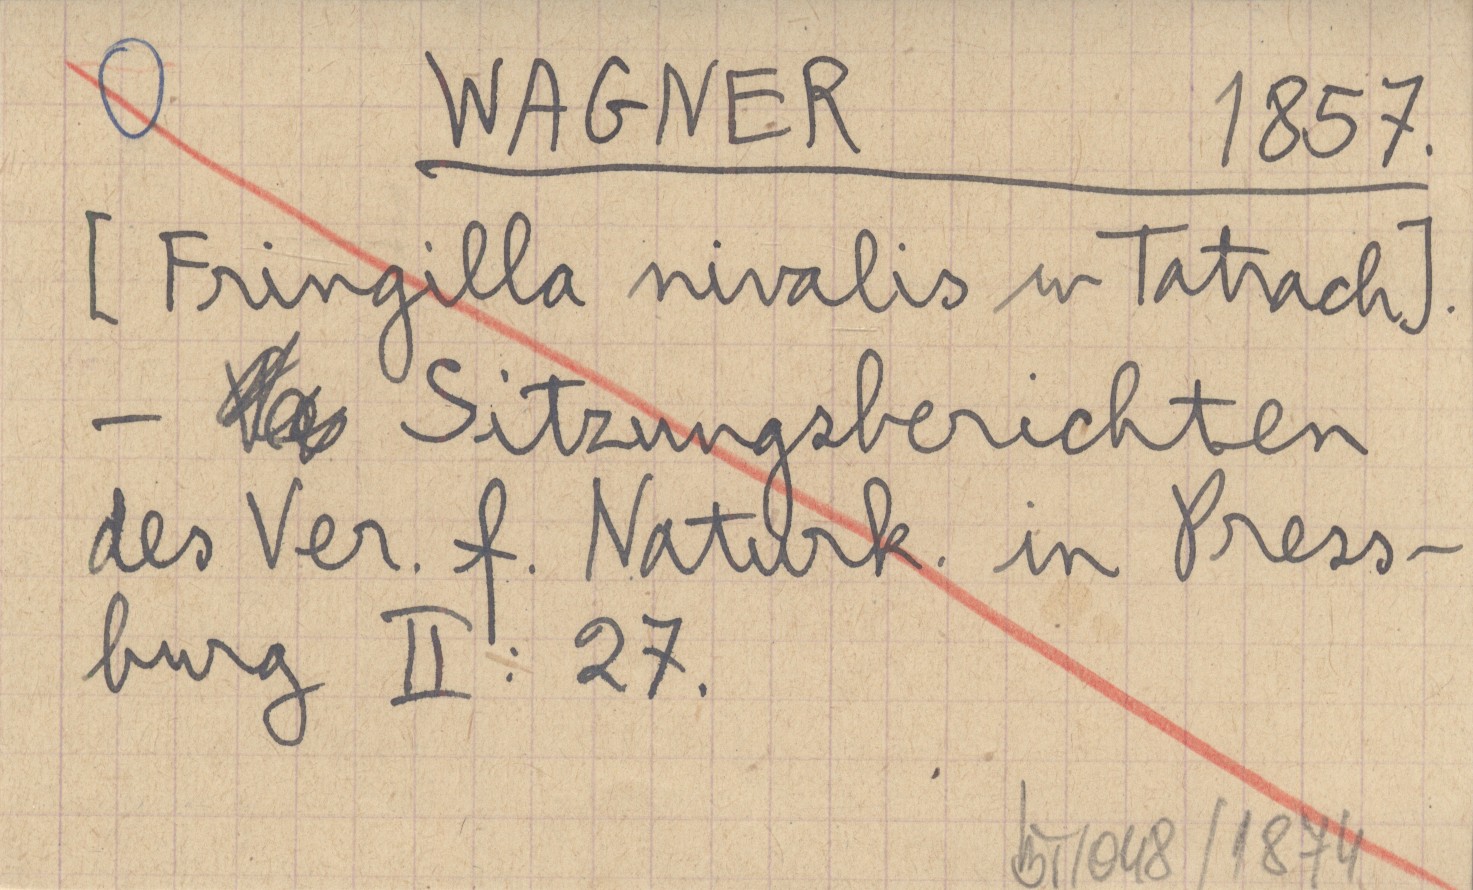 WAGNER 1857.
[Fringilla nivalis w Tatrach].
- Sitzungsberichten
des Ver. f. Naturk. in Press-
burg II: 27.
/1874